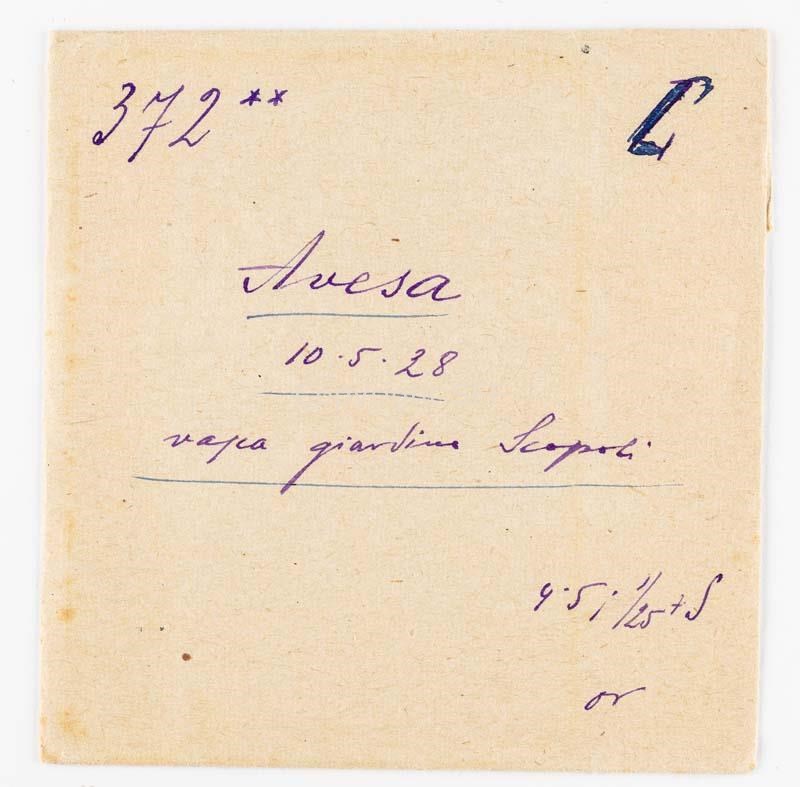 372 ** C
Avesa
10.5.28
vasca giardino Scopoli
4.5; 1/25 + S
or